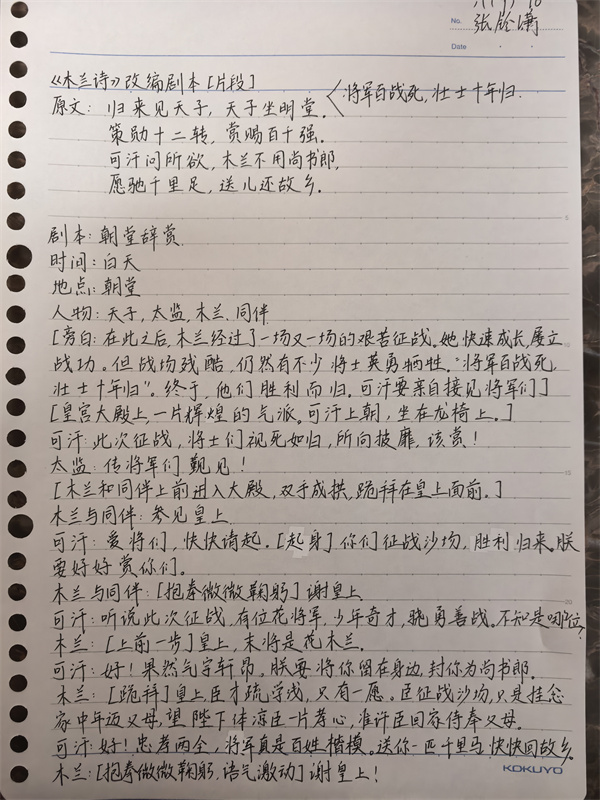 No. 张
Date
《木兰诗》改编剧本[片段]
原文: 归来见天子, 天子坐明堂. 将军百战死, 壮士十年归.
策勋十二转, 赏赐百千强.
可汗问所欲, 木兰不用尚书郎,
愿驰千里足, 送儿还故乡.
剧本: 朝堂辞赏.
时间: 白天
地点: 朝堂
人物: 天子, 太监, 木兰、同伴
[旁白: 在此之后, 木兰经过一场又一场的艰苦征战. 她快速成长, 屡立
战功. 但战场残酷, 仍然有不少将士英勇牺牲. “将军百战死,
壮士十年归”. 终于, 他们胜利而归. 可汗要亲自接见将军们]
[皇宫大殿上, 一片辉煌的气派. 可汗上朝, 坐在龙椅上.]
可汗: 此次征战, 将士们视死如归, 所向披靡, 该赏!
太监: 传将军们觐见!
[木兰和同伴上前进入大殿, 双手成拱, 跪拜在皇上面前.]
木兰与同伴: 参见皇上.
可汗: 爱将们, 快快请起. [起身] 你们征战沙场, 胜利归来. 朕
要好好赏你们.
木兰与同伴: [抱拳微微鞠躬] 谢皇上
可汗: 听说此次征战, 有位花将军, 少年奇才, 骁勇善战. 不知是哪位?
木兰: [上前一步] 皇上, 末将是花木兰.
可汗: 好! 果然气宇轩昂. 朕要将你留在身边, 封你为尚书郎.
木兰: [跪拜] 皇上, 臣才疏学浅, 只有一愿. 臣征战沙场, 只是挂念
家中年迈父母, 望陛下体谅臣一片孝心, 准许臣回家侍奉父母.
可汗: 好! 忠孝两全, 将军真是百姓楷模. 送你一匹千里马, 快快回故乡.
木兰: [抱拳微微鞠躬, 语气激动] 谢皇上!
KOKUYO